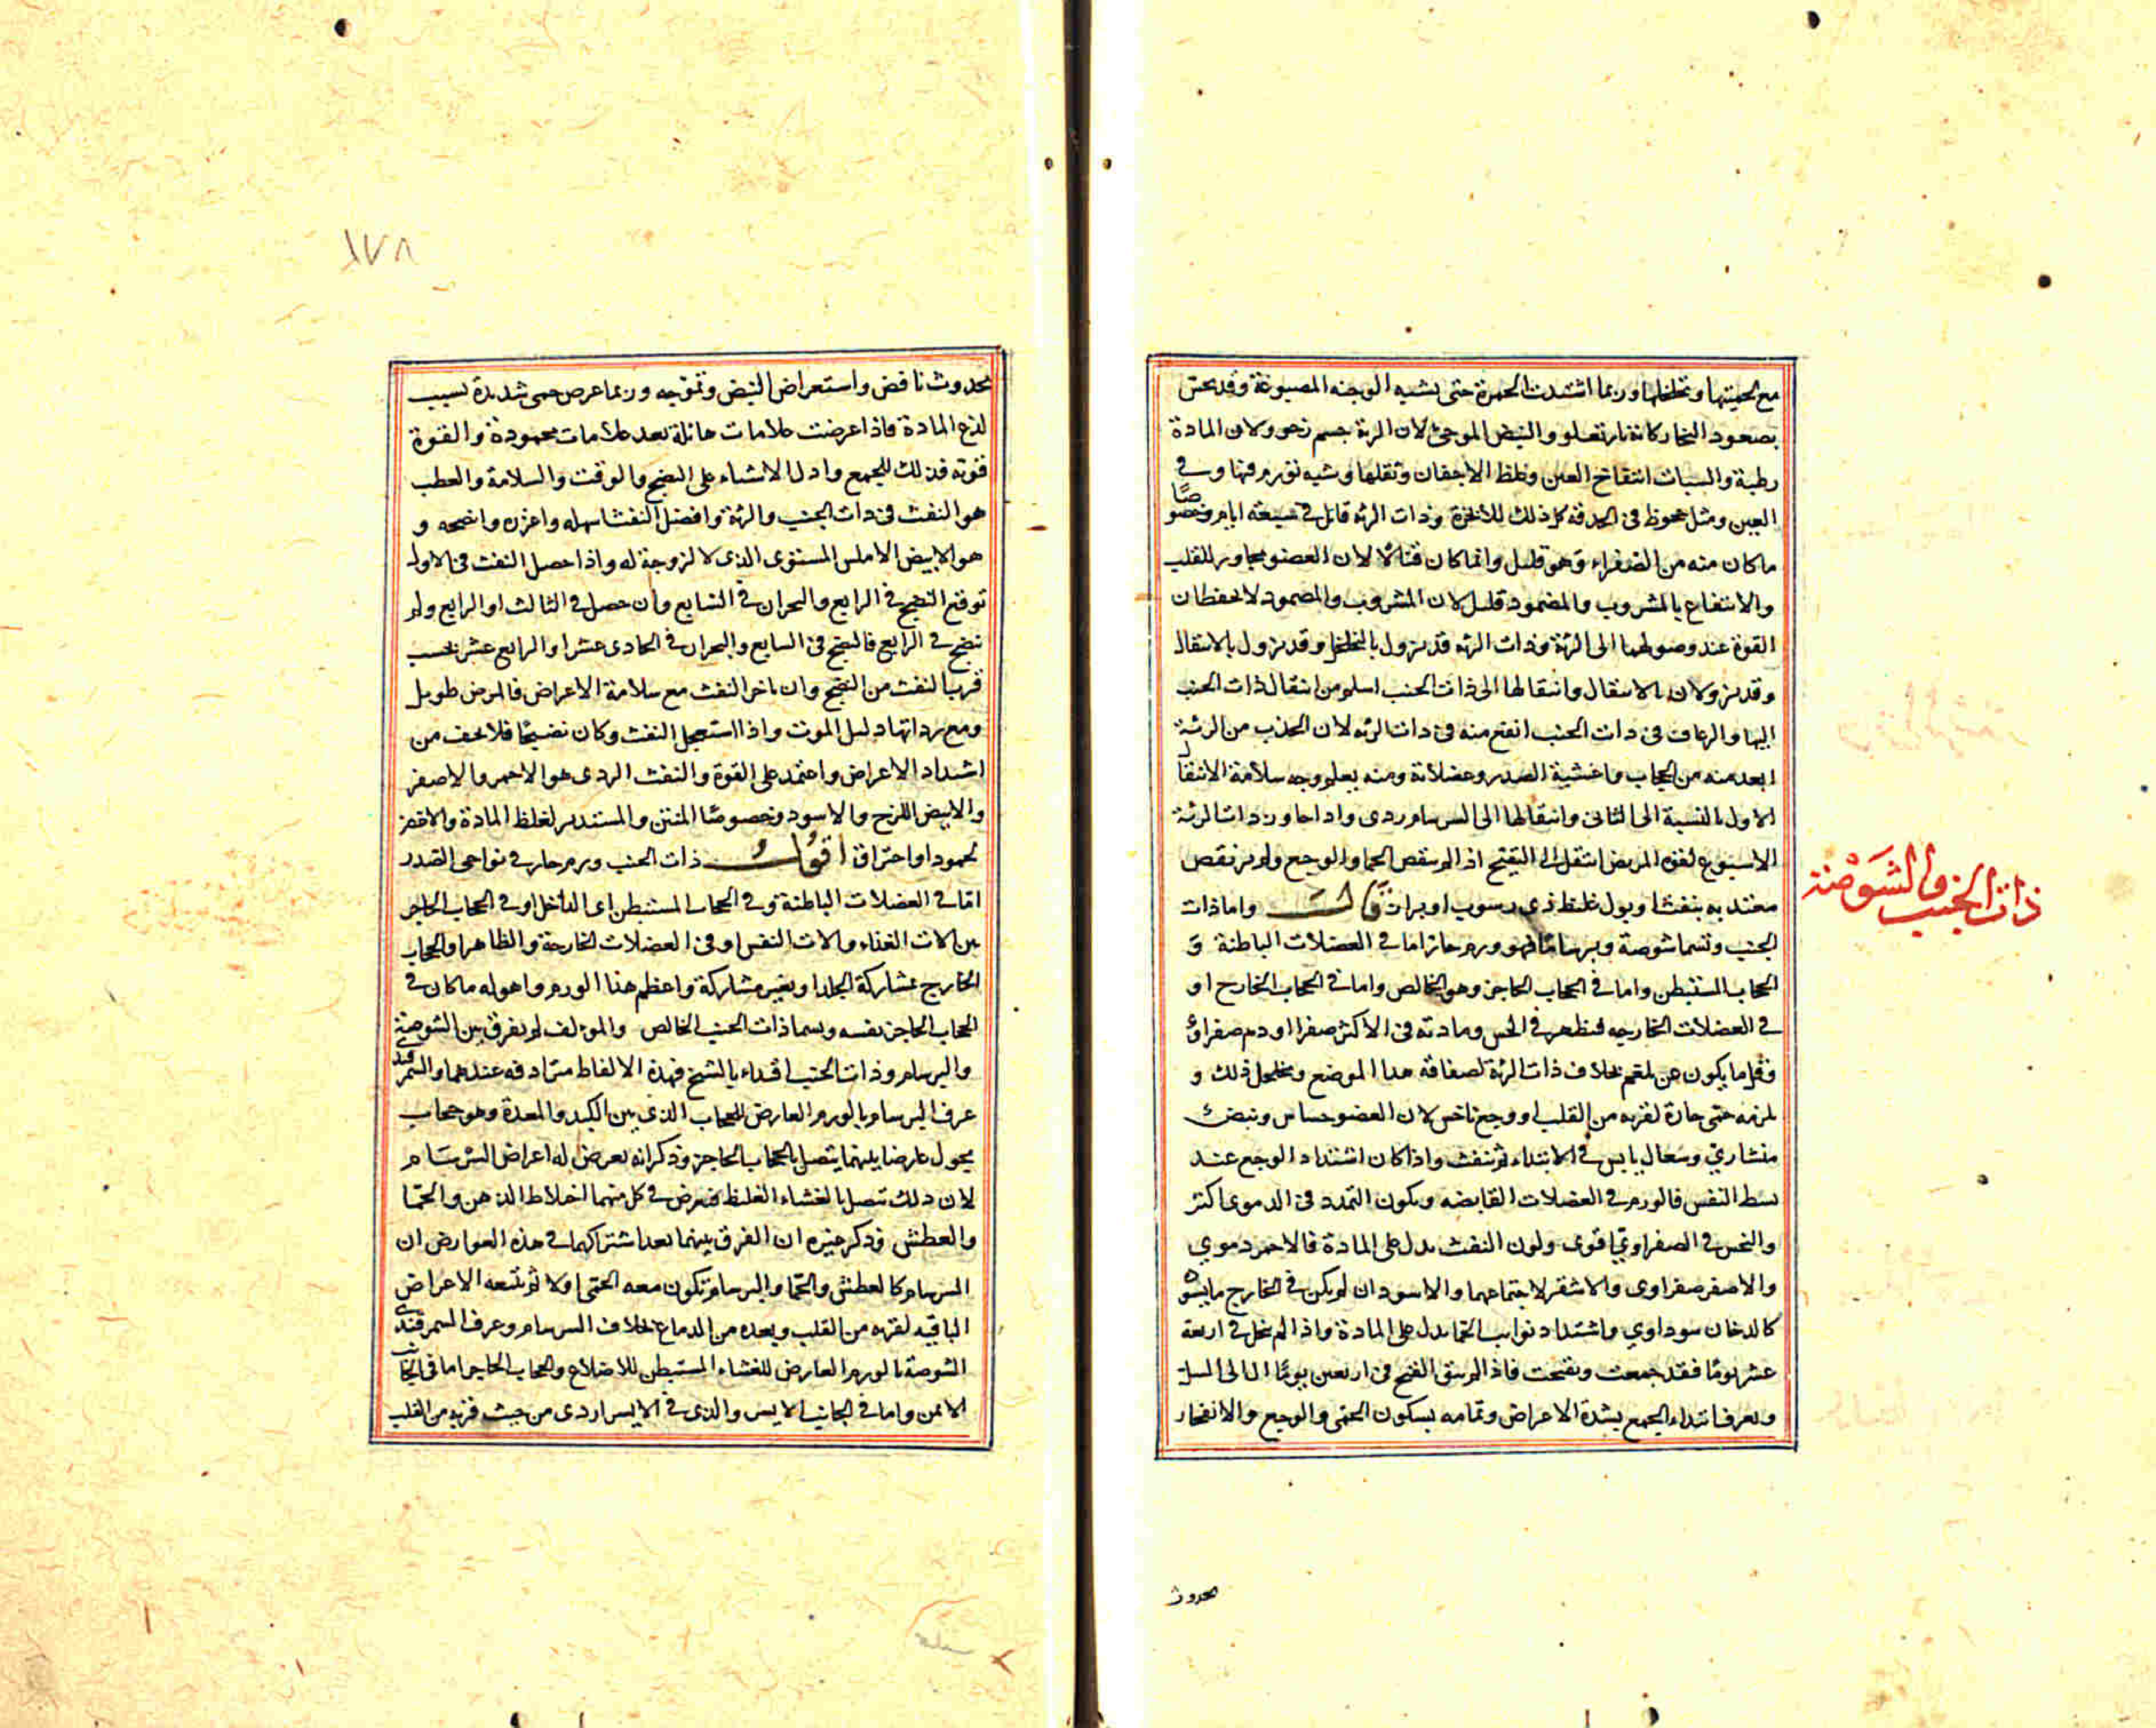 مع لحميتها وتخلخلها وربما اشتدت الحمرة حتى يشبه الوجنة المصبوغة وقد يحس
بصعود البخار كانه نار تعلو والنبض الموجي لان الرية جسم رخو ولان المادة
رطبة والسبات انتفاخ العين وغلظ الاجفان وثقلها وشبه تورم فيها وفي
العين ومثل جحوظ في الحدقة كل ذلك للابخرة وذات الرية قاتل في سبعة ايام وخصوصًا
ما كان منه من الصفراء وهو قليل وانما كان قتالا لان العضو مجاور للقلب
والانتفاع بالمشروب والمضمود قليل لان المشروب والمضمود لا يحفظان
القوة عند وصولهما الى الرية وذات الرية قد يزول بالتحلل وقد يزول بالانتقال
وقد يزولان بالانتقال وانتقالها الى ذات الجنب اسلم من انتقال ذات الجنب
اليها والرعاف في ذات الجنب انفع منه في ذات الرية لان الجذب من الرئة
ابعد منه من الحجاب واغشية الصدر وعضلاته ومنه يعلم وجه سلامة الانتقال
الاول بالنسبة الى الثاني وانتقالها الى السرسام ردى واذا جاوزت ذات الرئة
الاسبوع لقوة المريض انتقل الى التقيح اذا لم ينقص الحما والوجع ولم ينقص
معتد به بنفث او بول غليظ ذي رسوب او براز قال واما ذات
الجنب وتسما شوصة وبرسامًا فهو ورم حار اما في العضلات الباطنة و
الحجاب المستبطن واما في الحجاب الحاجز وهو الخالص واما في الحجاب الخارج او
في العضلات الخارجه فيظهر في الحس ومادته في الاكثر صفرا او دم صفراوي
وقل ما يكون عن بلغم بخلاف ذات الرئة لصفاقة هذا الموضع وتخلخل ذلك و
يلزمه حمى حادة لقربه من القلب ووجع ناخس لان العضو حساس ونبض
منشاري وسعال يابس في الابتداء ثم ينفث واذا كان اشتداد الوجع عند
بسط النفس فالورم في العضلات القابضه ويكون التمدد في الدموي اكثر
والنخس في الصفراوي اقوى ولون النفث يدل على المادة فالاحمر دموي
والاصفر صفراوى والاشقر لاجتماعهما والاسود ان لم يكن في الخارج ما يسود
كالدخان سوداوي واشتداد نوايب الحما يدل على المادة واذا لم يتحلل في اربعة
عشر يومًا فقد جمعت وتقيحت فاذا لم ينق القيح في اربعين يومًا ال الى السل
ويعرف ابتداء الجمع بشدة الاعراض وتمامه بسكون الحمى والوجع والانفجار
ذات الجنب والشوصة
بحدوث
١٧٨
بحدوث نافض واستعراض النبض وتموجه وربما عرض حمى شديدة بسبب
لذع المادة فاذا عرضت علامات هائلة بعد علامات محمودة والقوة
قوية فذلك للجمع وادل الاشياء على النضج والوقت والسلامة والعطب
هو النفث في ذات الجنب والرئة وافضل النفث اسهله واغزره وانضجه و
هو الابيض الاملس المستوى الذى لا لزوجة له واذا حصل النفث في الاول
توقع النضج في الرابع والبحران في السابع وان حصل في الثالث او الرابع ولم
ينضج في الرابع فالنضج في السابع والبحران في الحادى عشر او الرابع عشر بحسب
قرب النفث من النضج وان تاخر النفث مع سلامة الاعراض فالمرض طويل
ومع رداتها دليل الموت واذا استعجل النفث وكان نضيجًا فلا تخف من
اشتداد الاعراض واعتمد على القوة والنفث الردى هو الاحمر والاصفر
والابيض اللزج والاسود وخصوصًا المنتن والمستدير لغلظ المادة والاخضر
لجمود او احتراق اقول ذات الجنب ورم حار في نواحي الصدر
اما في العضلات الباطنة وفي الحجاب المستبطن اى الداخل او في الحجاب الحاجز
بين الات الغذاء والات النفس او في العضلات الخارجة والظاهر او الحجاب
الخارج بمشاركة الجلد او بغير مشاركة واعظم هذا الورم واهوله ما كان في
الحجاب الحاجز نفسه ويسما ذات الجنب الخالص والمولف لم يفرق بين الشوصة
والبرسام وذات الجنب اقتداء بالشيخ فهذه الالفاظ مترادفه عندهما والسمرقندي
عرف البرسام بالورم العارض للحجاب الذي بين الكبد والمعدة وهو حجاب
يحول عارضا بينهما يتصل بالحجاب الحاجز وذكر انه يعرض له اعراض السرسام
لان ذلك يتصل بالغشاء الغليظ فيعرض في كل منهما اختلاط الذهن والحما
والعطش وذكر غيره ان الفرق بينهما بعد اشتراكهما في هذه العوارض ان
السرسام كالعطش والحما والبرسام تكون معه الحمى اولا ثم تتبعه الاعراض
الباقيه لقربه من القلب وبعده من الدماغ بخلاف السرسام وعرف السمرقندي
الشوصة بالورم العارض للغشاء المستبطن للاضلاع والحجاب الحاجز اما في الجانب
الايمن واما في الجانب الايسر والذى في الايسر اردى من حيث قربه من القلب